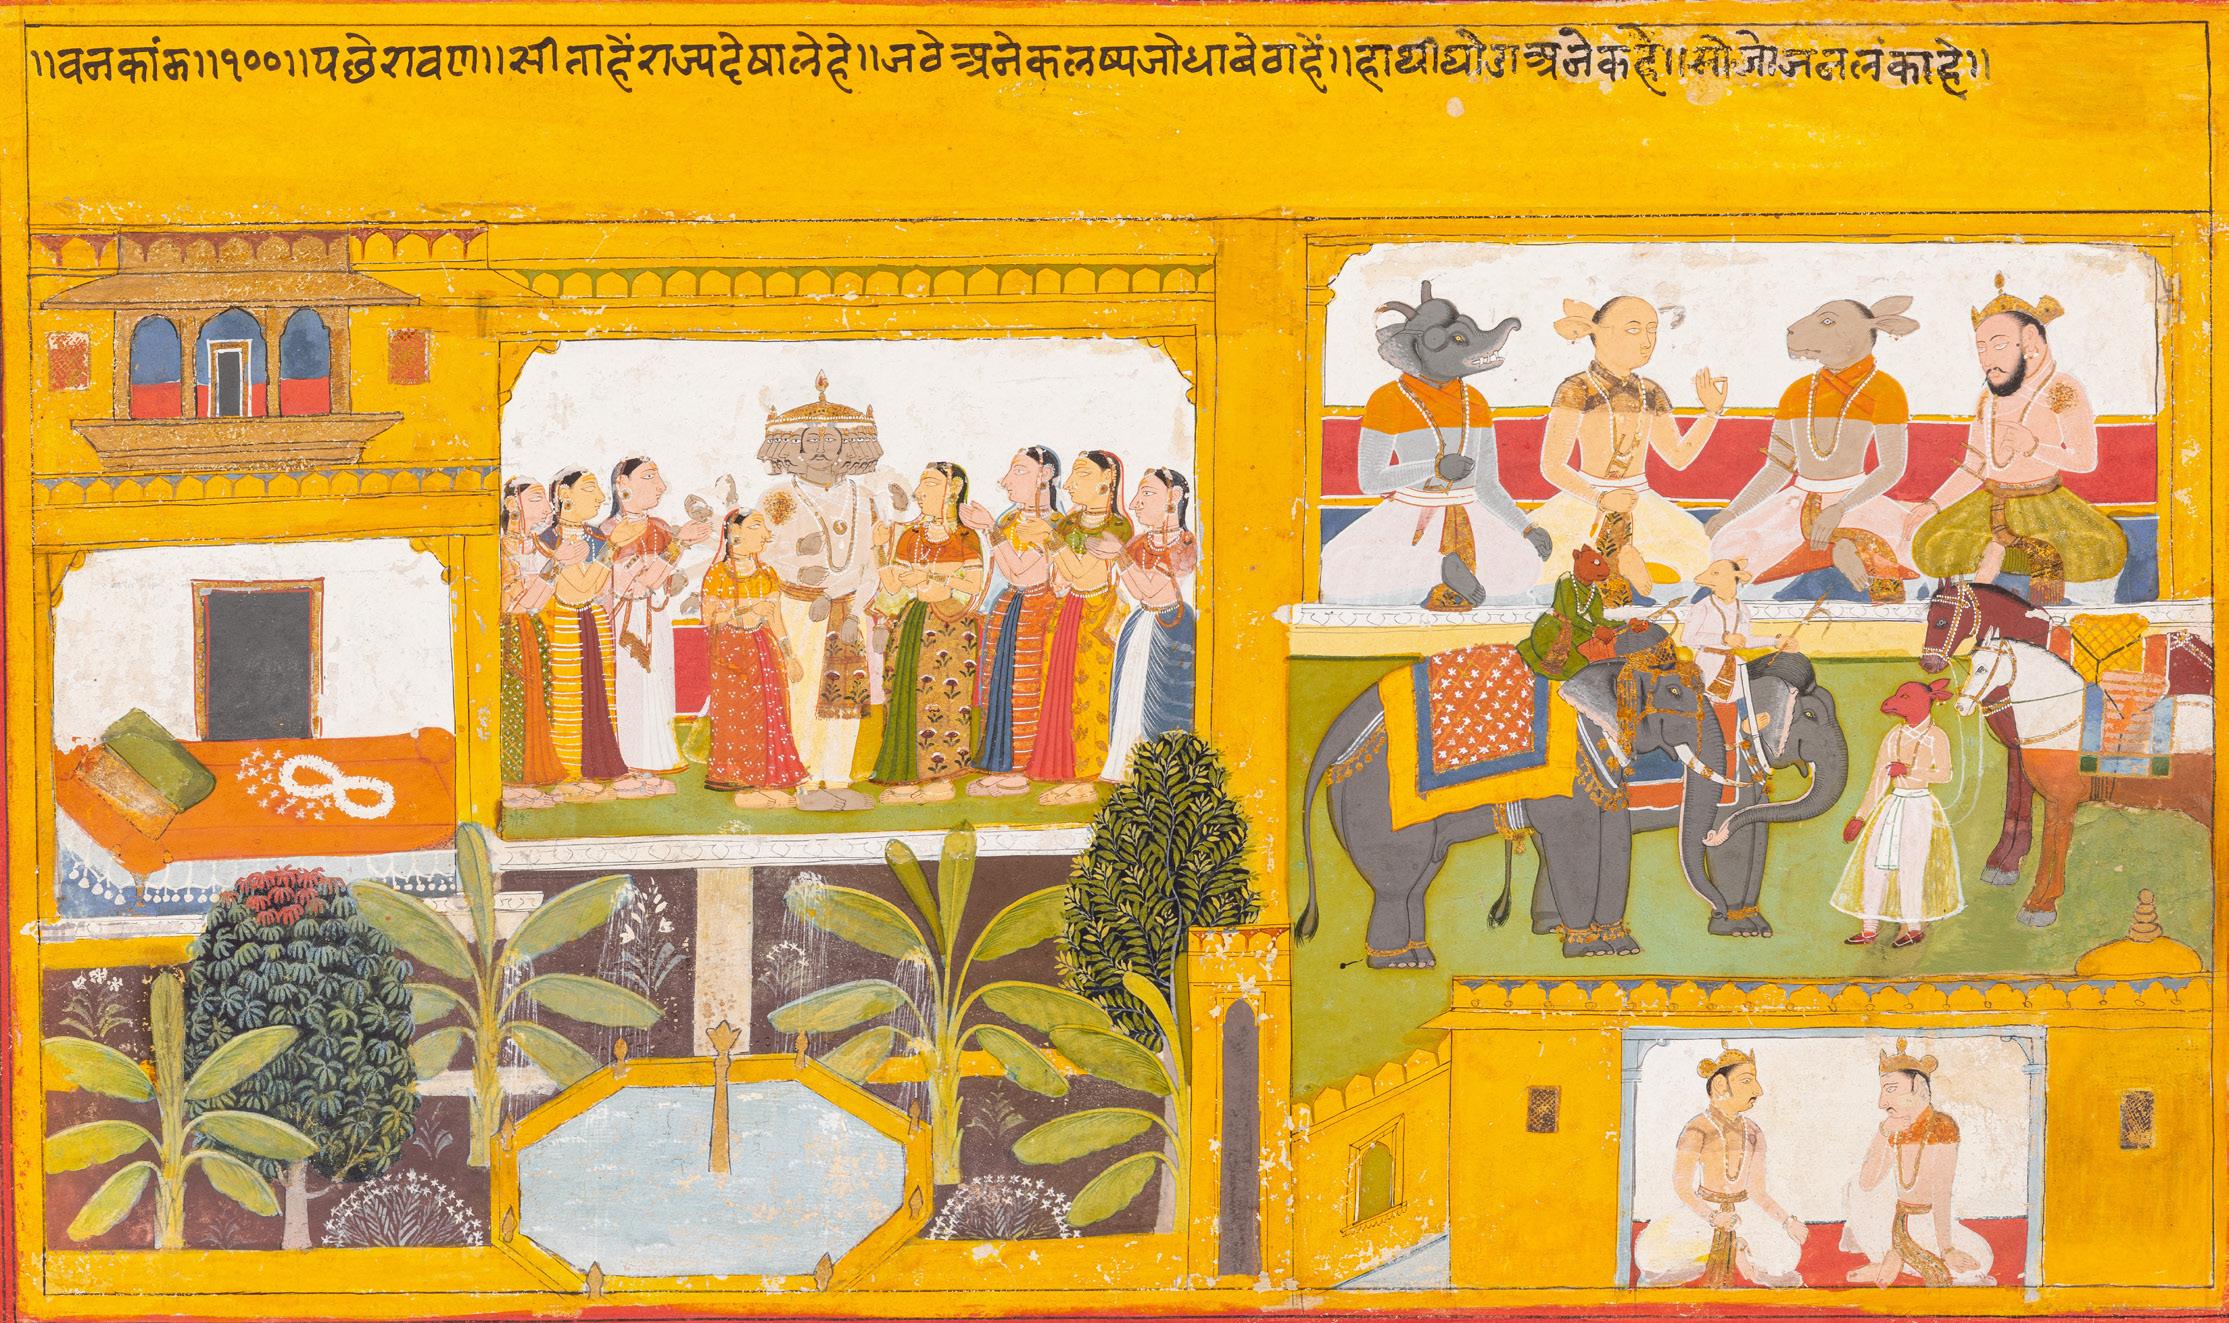 ॥वनकांम॥१००॥पछेरावण॥सीताहेंराज्यदेषालेहे॥जवेअनेकलष्यजोधाबेठाहें॥हाथीघोडाअनेकहे॥सोजोजनलंकाहे॥